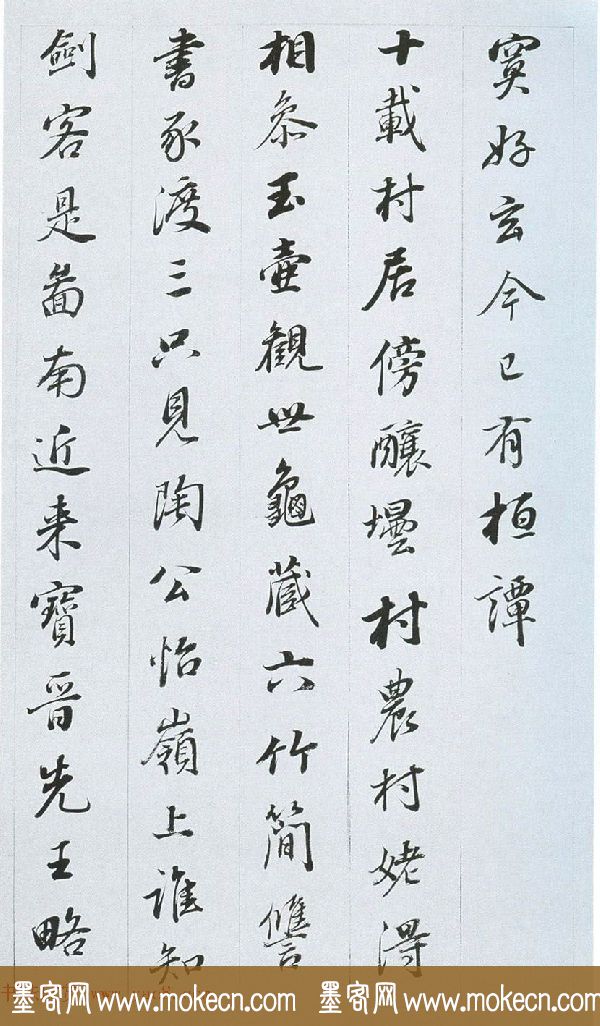 寞好玄今已有桓譚
十載村居傍釀壜村農村姥淂
相叅玉壺觀世龜藏六竹簡讐
書豕渡三只見陶公怡嶺上誰知
劍客是啚南近来寶晉先王略
墨客网 www.mokecn.com 墨客网 www.mokecn.com